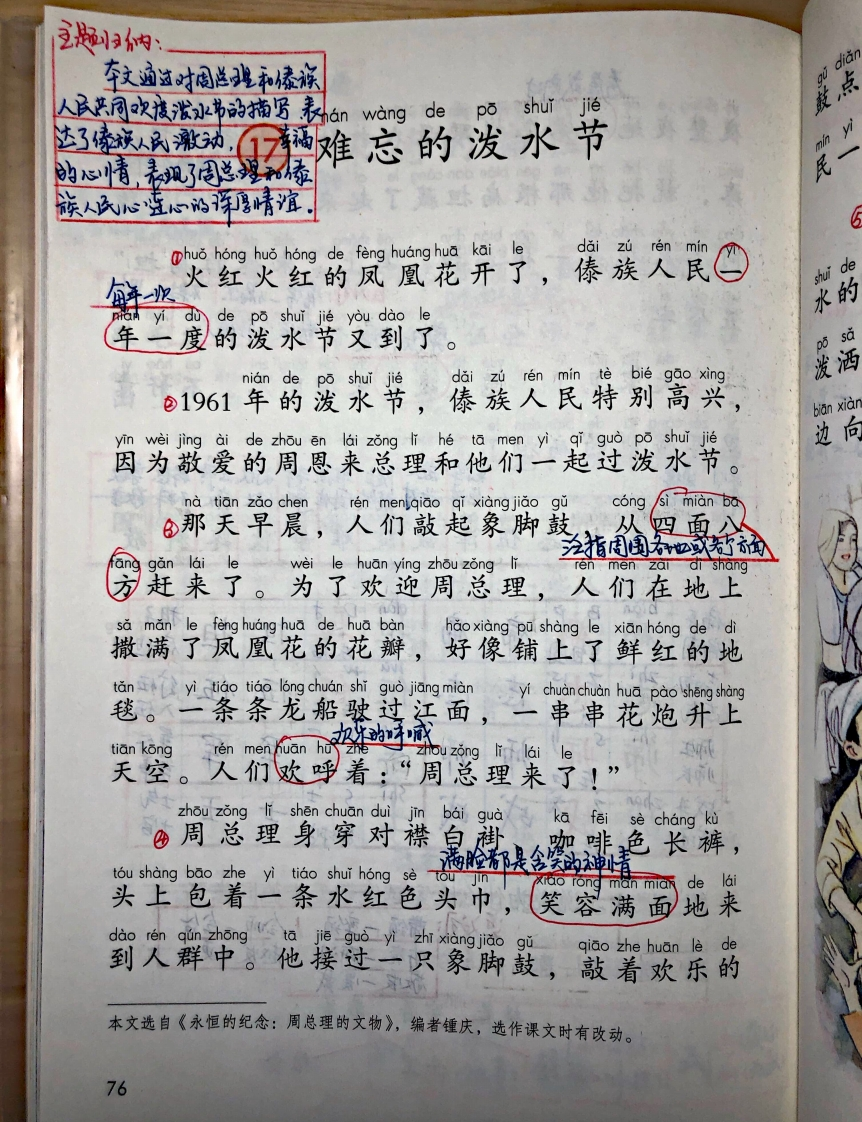 主题归纳：
本文通过对周总理和傣族
人民共同欢度泼水节的描写表
达了傣族人民激动，幸福
的心情，表现了周总理和傣
族人民心连心的深厚情谊。
nán wàng de pō shuǐ jié
17 难忘的泼水节
huǒ hóng huǒ hóng de fèng huáng huā kāi le dǎi zú rén mín yì
①火红火红的凤凰花开了，傣族人民一
每年一次
nián yí dù de pō shuǐ jié yòu dào le
年一度的泼水节又到了。
nián de pō shuǐ jié dǎi zú rén mín tè bié gāo xìng
②1961年的泼水节，傣族人民特别高兴，
yīn wèi jìng ài de zhōu ēn lái zǒng lǐ hé tā men yì qǐ guò pō shuǐ jié
因为敬爱的周恩来总理和他们一起过泼水节。
nà tiān zǎo chen rén men qiāo qǐ xiàng jiǎo gǔ cóng sì miàn bā
③那天早晨，人们敲起象脚鼓 从四面八
泛指周围各地或各个方面
fāng gǎn lái le wèi le huān yíng zhōu zǒng lǐ rén men zài dì shang
方赶来了。为了欢迎周总理，人们在地上
sǎ mǎn le fèng huáng huā de huā bàn hǎo xiàng pū shàng le xiān hóng de dì
撒满了凤凰花的花瓣，好像铺上了鲜红的地
tǎn yì tiáo tiáo lóng chuán shǐ guò jiāng miàn yí chuàn chuàn huā pào shēng shàng
毯。一条条龙船驶过江面，一串串花炮升上
欢乐的呼喊
tiān kōng rén men huān hū zhe zhōu zǒng lǐ lái le
天空。人们欢呼着：“周总理来了！”
zhōu zǒng lǐ shēn chuān duì jīn bái guà kā fēi sè cháng kù
④周总理身穿对襟白褂 咖啡色长裤，
满脸都是含笑的神情
tóu shàng bāo zhe yì tiáo shuǐ hóng sè tóu jīn xiào róng mǎn miàn de lái
头上包着一条水红色头巾，笑容满面地来
dào rén qún zhōng tā jiē guò yì zhī xiàng jiǎo gǔ qiāo zhe huān lè de
到人群中。他接过一只象脚鼓，敲着欢乐的
本文选自《永恒的纪念：周总理的文物》，编者锺庆，选作课文时有改动。
76
gǔ diǎn
鼓点
mín yì
民一
⑤
shuǐ de
水的
pō sǎ
泼洒
biān xiàng
边向